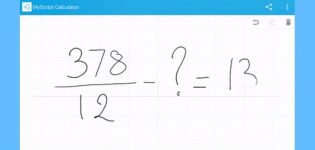 MyScript Calculator
378
12
- ? = 13